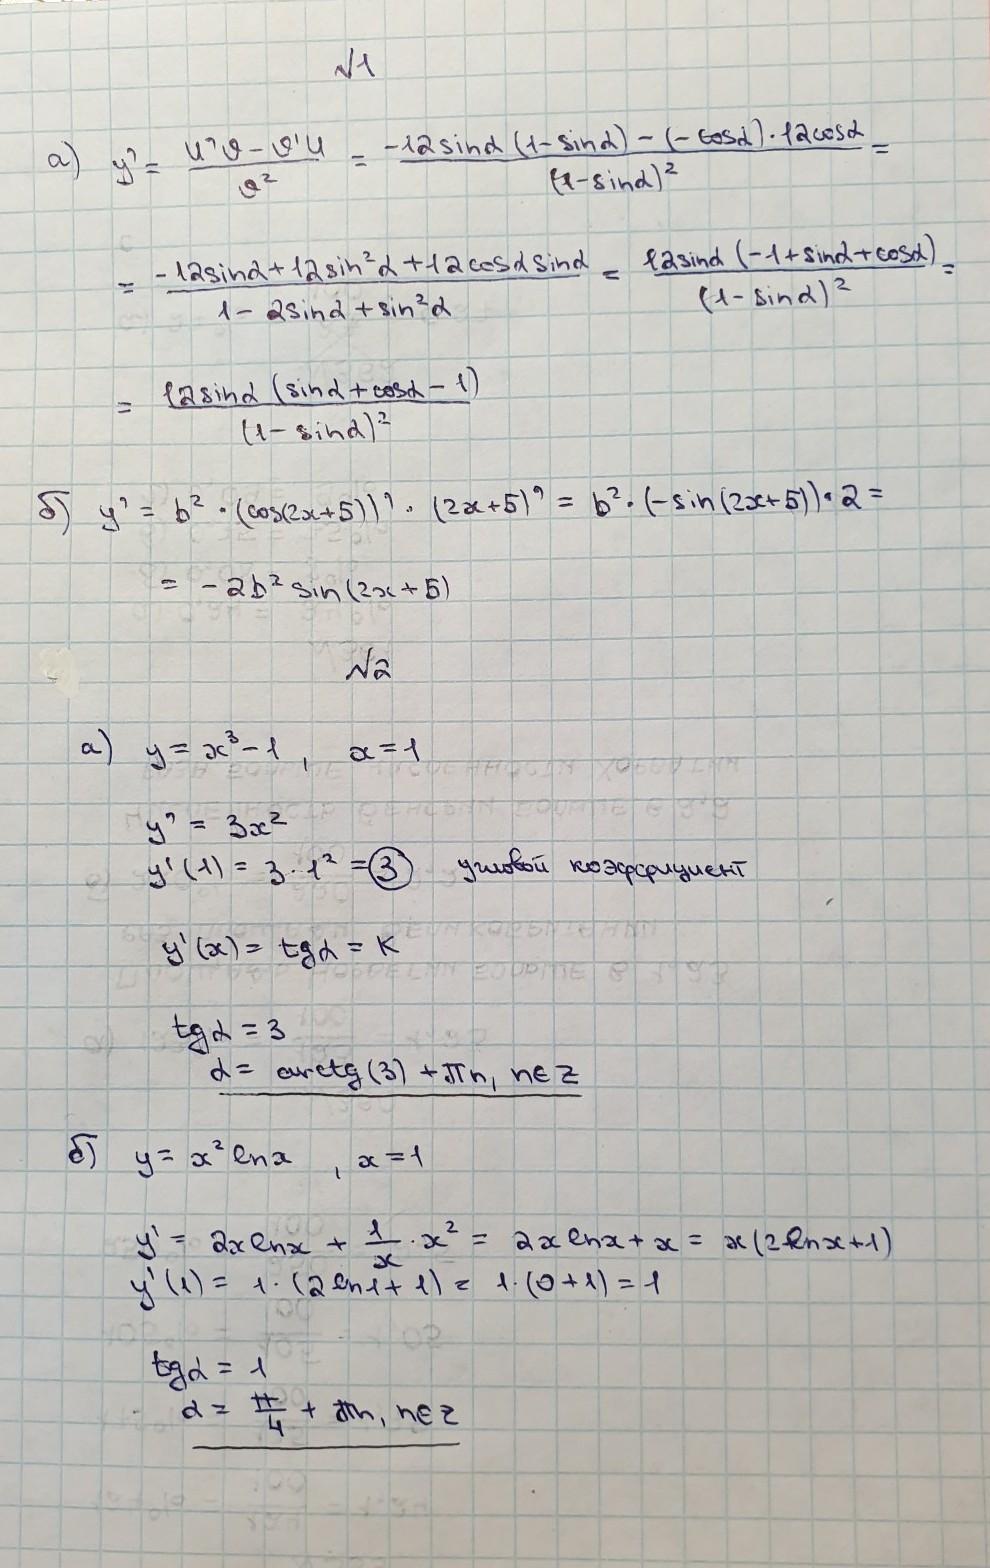 √1
а) y' = (u'v - v'u)/v² = (-12sinα (1-sinα) - (-cosα)·12cosα)/(1-sinα)² =
= (-12sinα+12sin²α+12cosαsinα)/(1-2sinα+sin²α) = (12sinα (-1+sinα+cosα))/(1-sinα)² =
= (12sinα (sinα+cosα-1))/(1-sinα)²
б) y' = b² · (cos(2x+5))' · (2x+5)' = b² · (-sin(2x+5)) · 2 =
= -2b² sin(2x+5)
√2
а) y = x³-1, x=1
y' = 3x²
y'(1) = 3·1² = 3 угловой коэффициент
y'(x) = tgα = K
tgα = 3
α = arctg(3) + πn, n∈Z
б) y = x² lnx, x=1
y' = 2x lnx + 1/x · x² = 2x lnx + x = x(2lnx+1)
y'(1) = 1·(2ln1+1) = 1·(0+1) = 1
tgα = 1
α = π/4 + πn, n∈Z